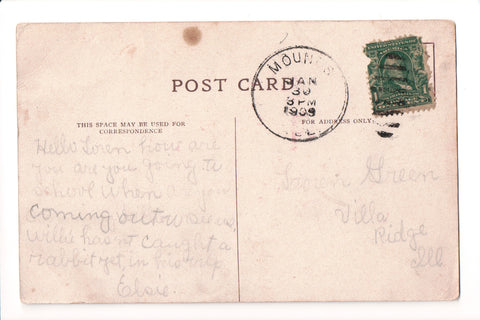 POST CARD
MOUNDS
JAN
30
3 PM
1909
ILL.
THIS SPACE MAY BE USED FOR
CORRESPONDENCE
FOR ADDRESS ONLY
Hello Loren how are
you are you going to
school when are you
coming out
Willie hasn't caught a
rabbit yet in his trap
Elsie
Loren Green
Villa
Ridge
Ill